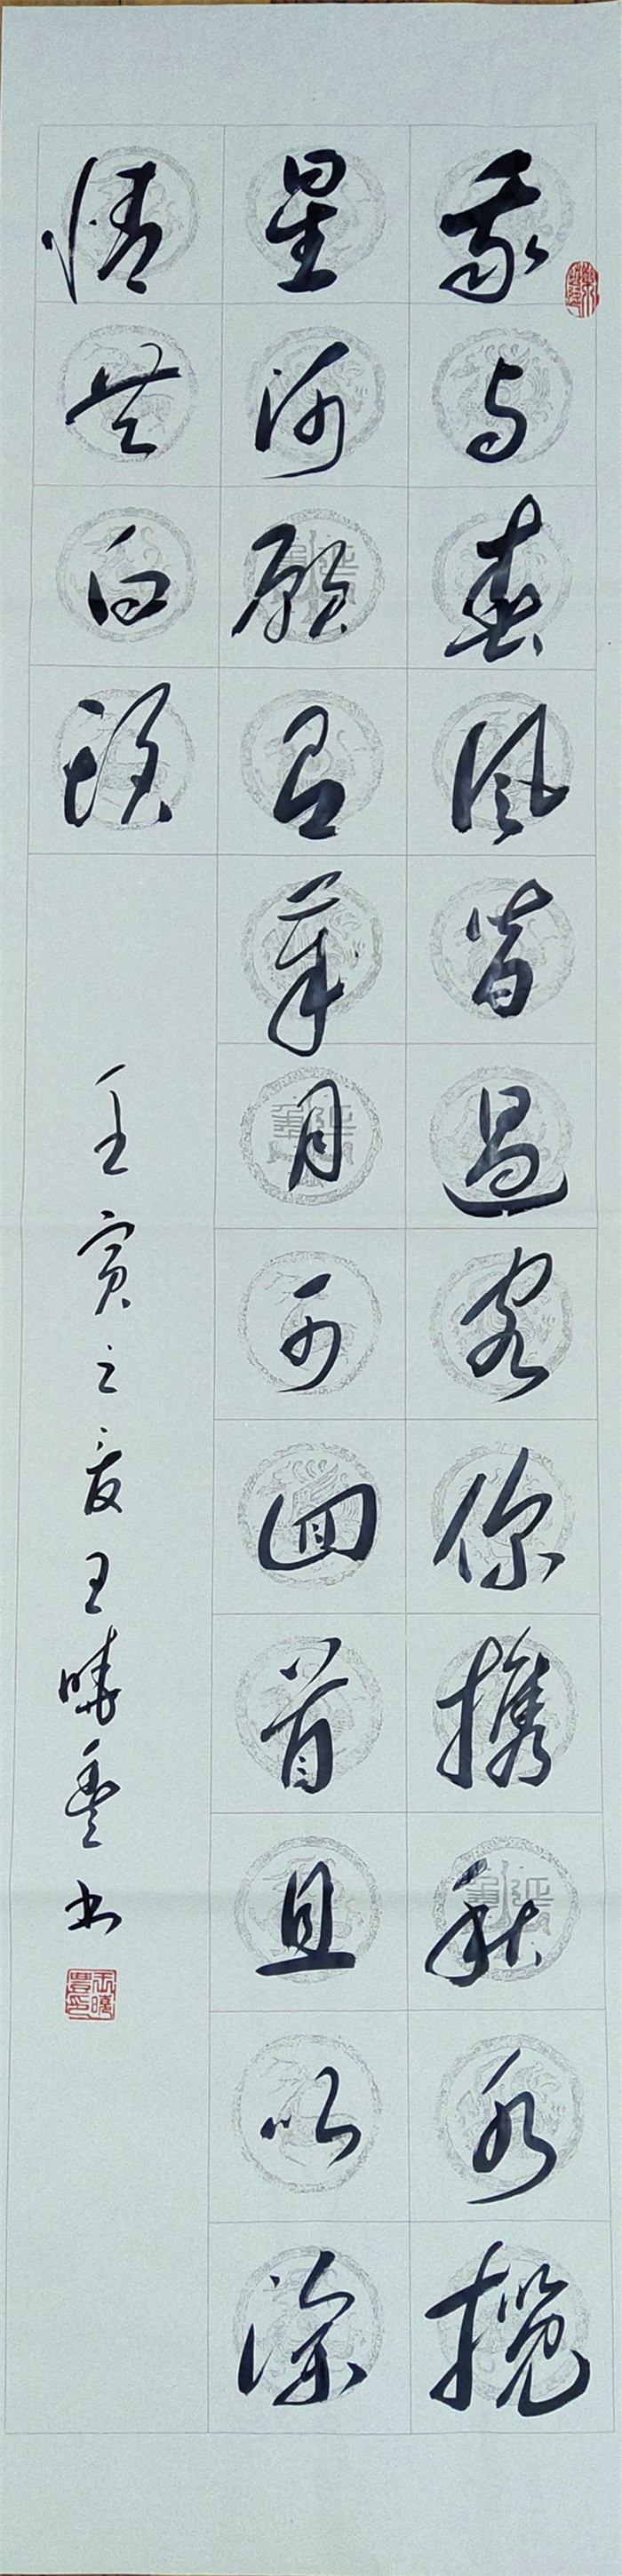 我与春风皆过客你携秋水揽
星河愿君年月可回首且以深
情共白头
壬寅之夏王晓丰书